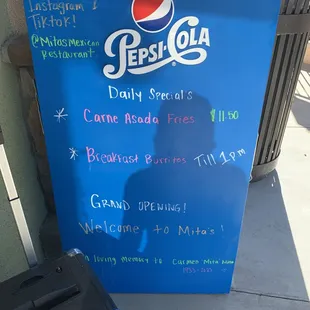 Instagram &
Tiktok!
@MitasMexican
Restaurant
PEPSI-COLA
Daily Special's
* Carne Asada Fries $11.50
* Breakfast Burritos Till 1pm
GRAND OPENING!
Welcome to Mita's!
living memory to Carmen Mita